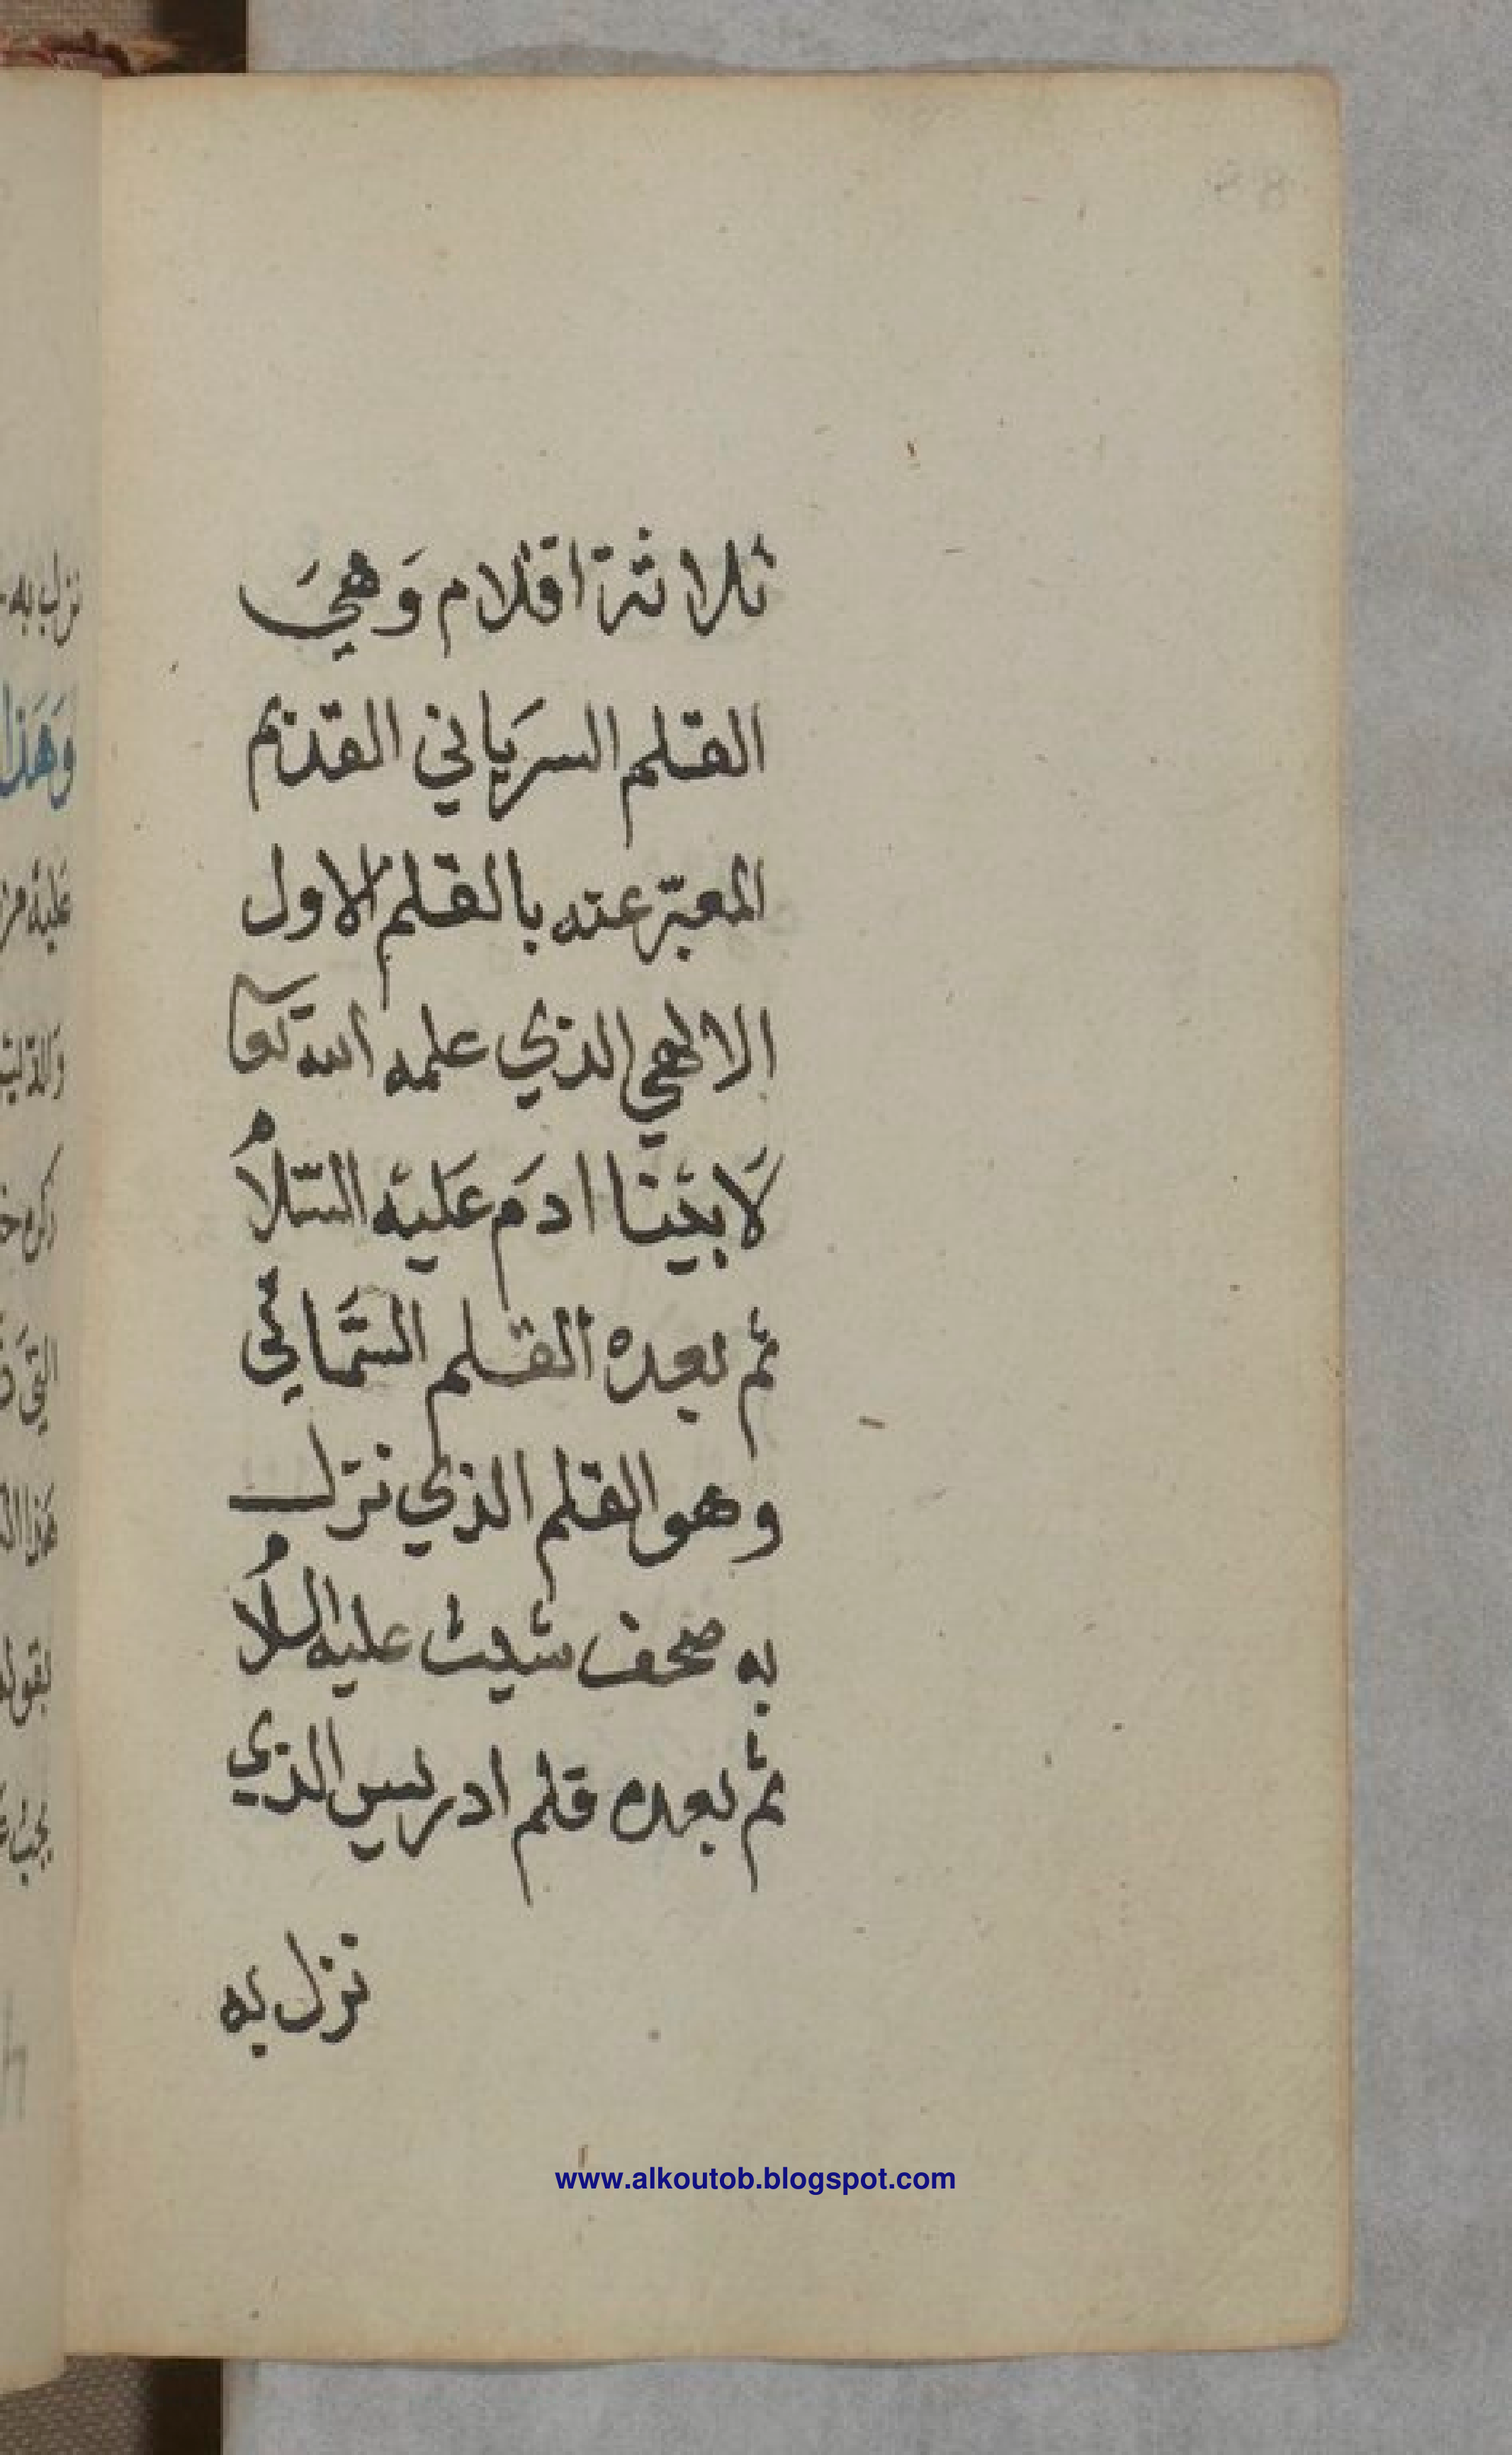 ثلاثة اقلام وَهيَ
القلم السرَياني القديم
المعبّر عنه بالقلم الاول
الالهي الذي علمه الله تعا
لَابينا ادَم عَليه السّلامُ
ثم بعده القلم السّمَائي
وهو القلم الذي نزل
به صحف شيث عليه السلامُ
ثم بعده قلم ادريس الذي
نزل به
www.alkoutob.blogspot.com
نزل به
وَهَذا
عَلية